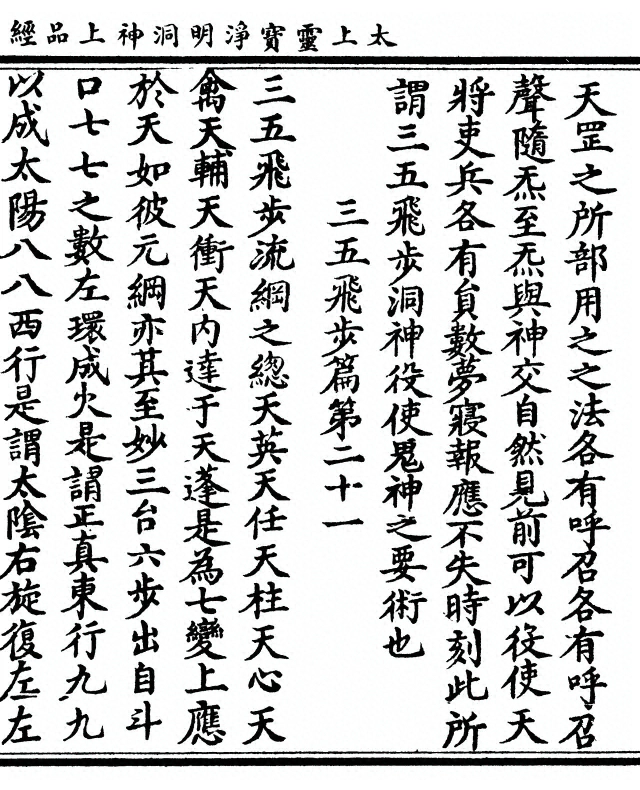 太上靈寶淨明洞神上品經
天罡之所部用之之法各有呼召各有呼召
聲隨炁至炁與神交自然見前可以役使天
將吏兵各有員數夢寐報應不失時刻此所
謂三五飛步洞神役使鬼神之要術也
三五飛步篇第二十一
三五飛步流綱之總天英天任天柱天心天
禽天輔天衝天内達于天蓬是為七變上應
於天如彼元綱亦其至妙三台六步出自斗
口七七之數左環成火是謂正真東行九九
以成太陽八八西行是謂太陰右旋復左左